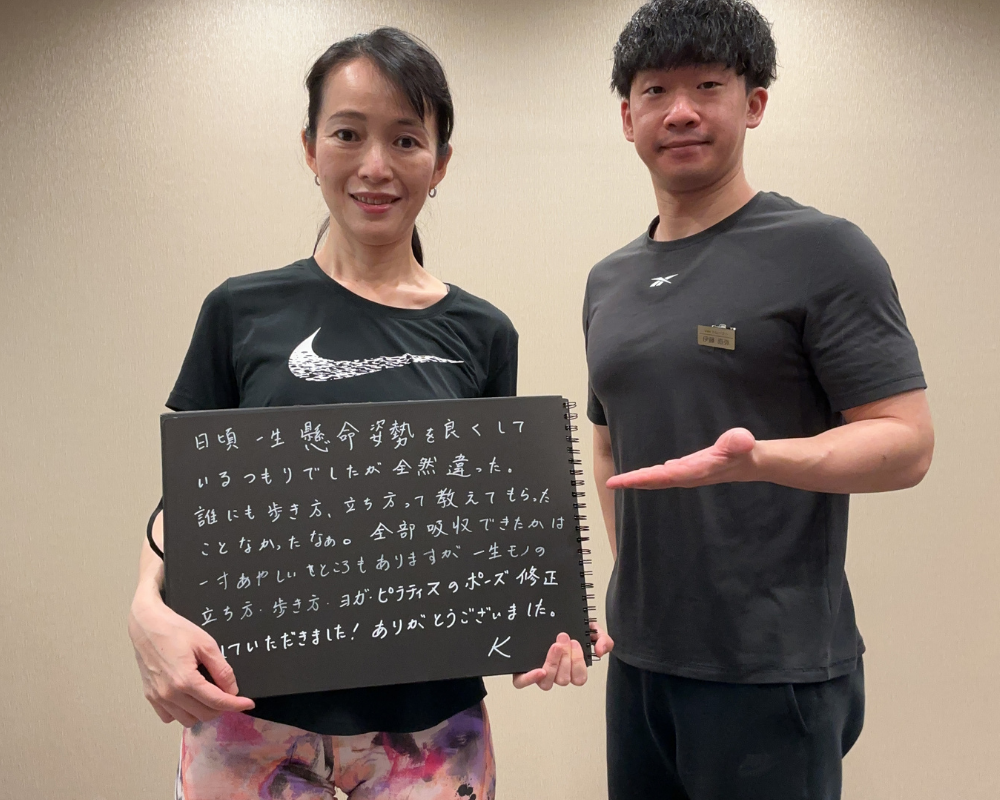 日頃 一生 懸命 姿勢を良くして
いるつもりでしたが全然違った。
誰にも歩き方、立ち方って教えてもらった
ことなかったなぁ。全部吸収できたかは
一寸あやしいところもありますが一生モノの
立ち方・歩き方・ヨガ・ピラティスのポーズ修正
していただきました！ありがとうございました。
K